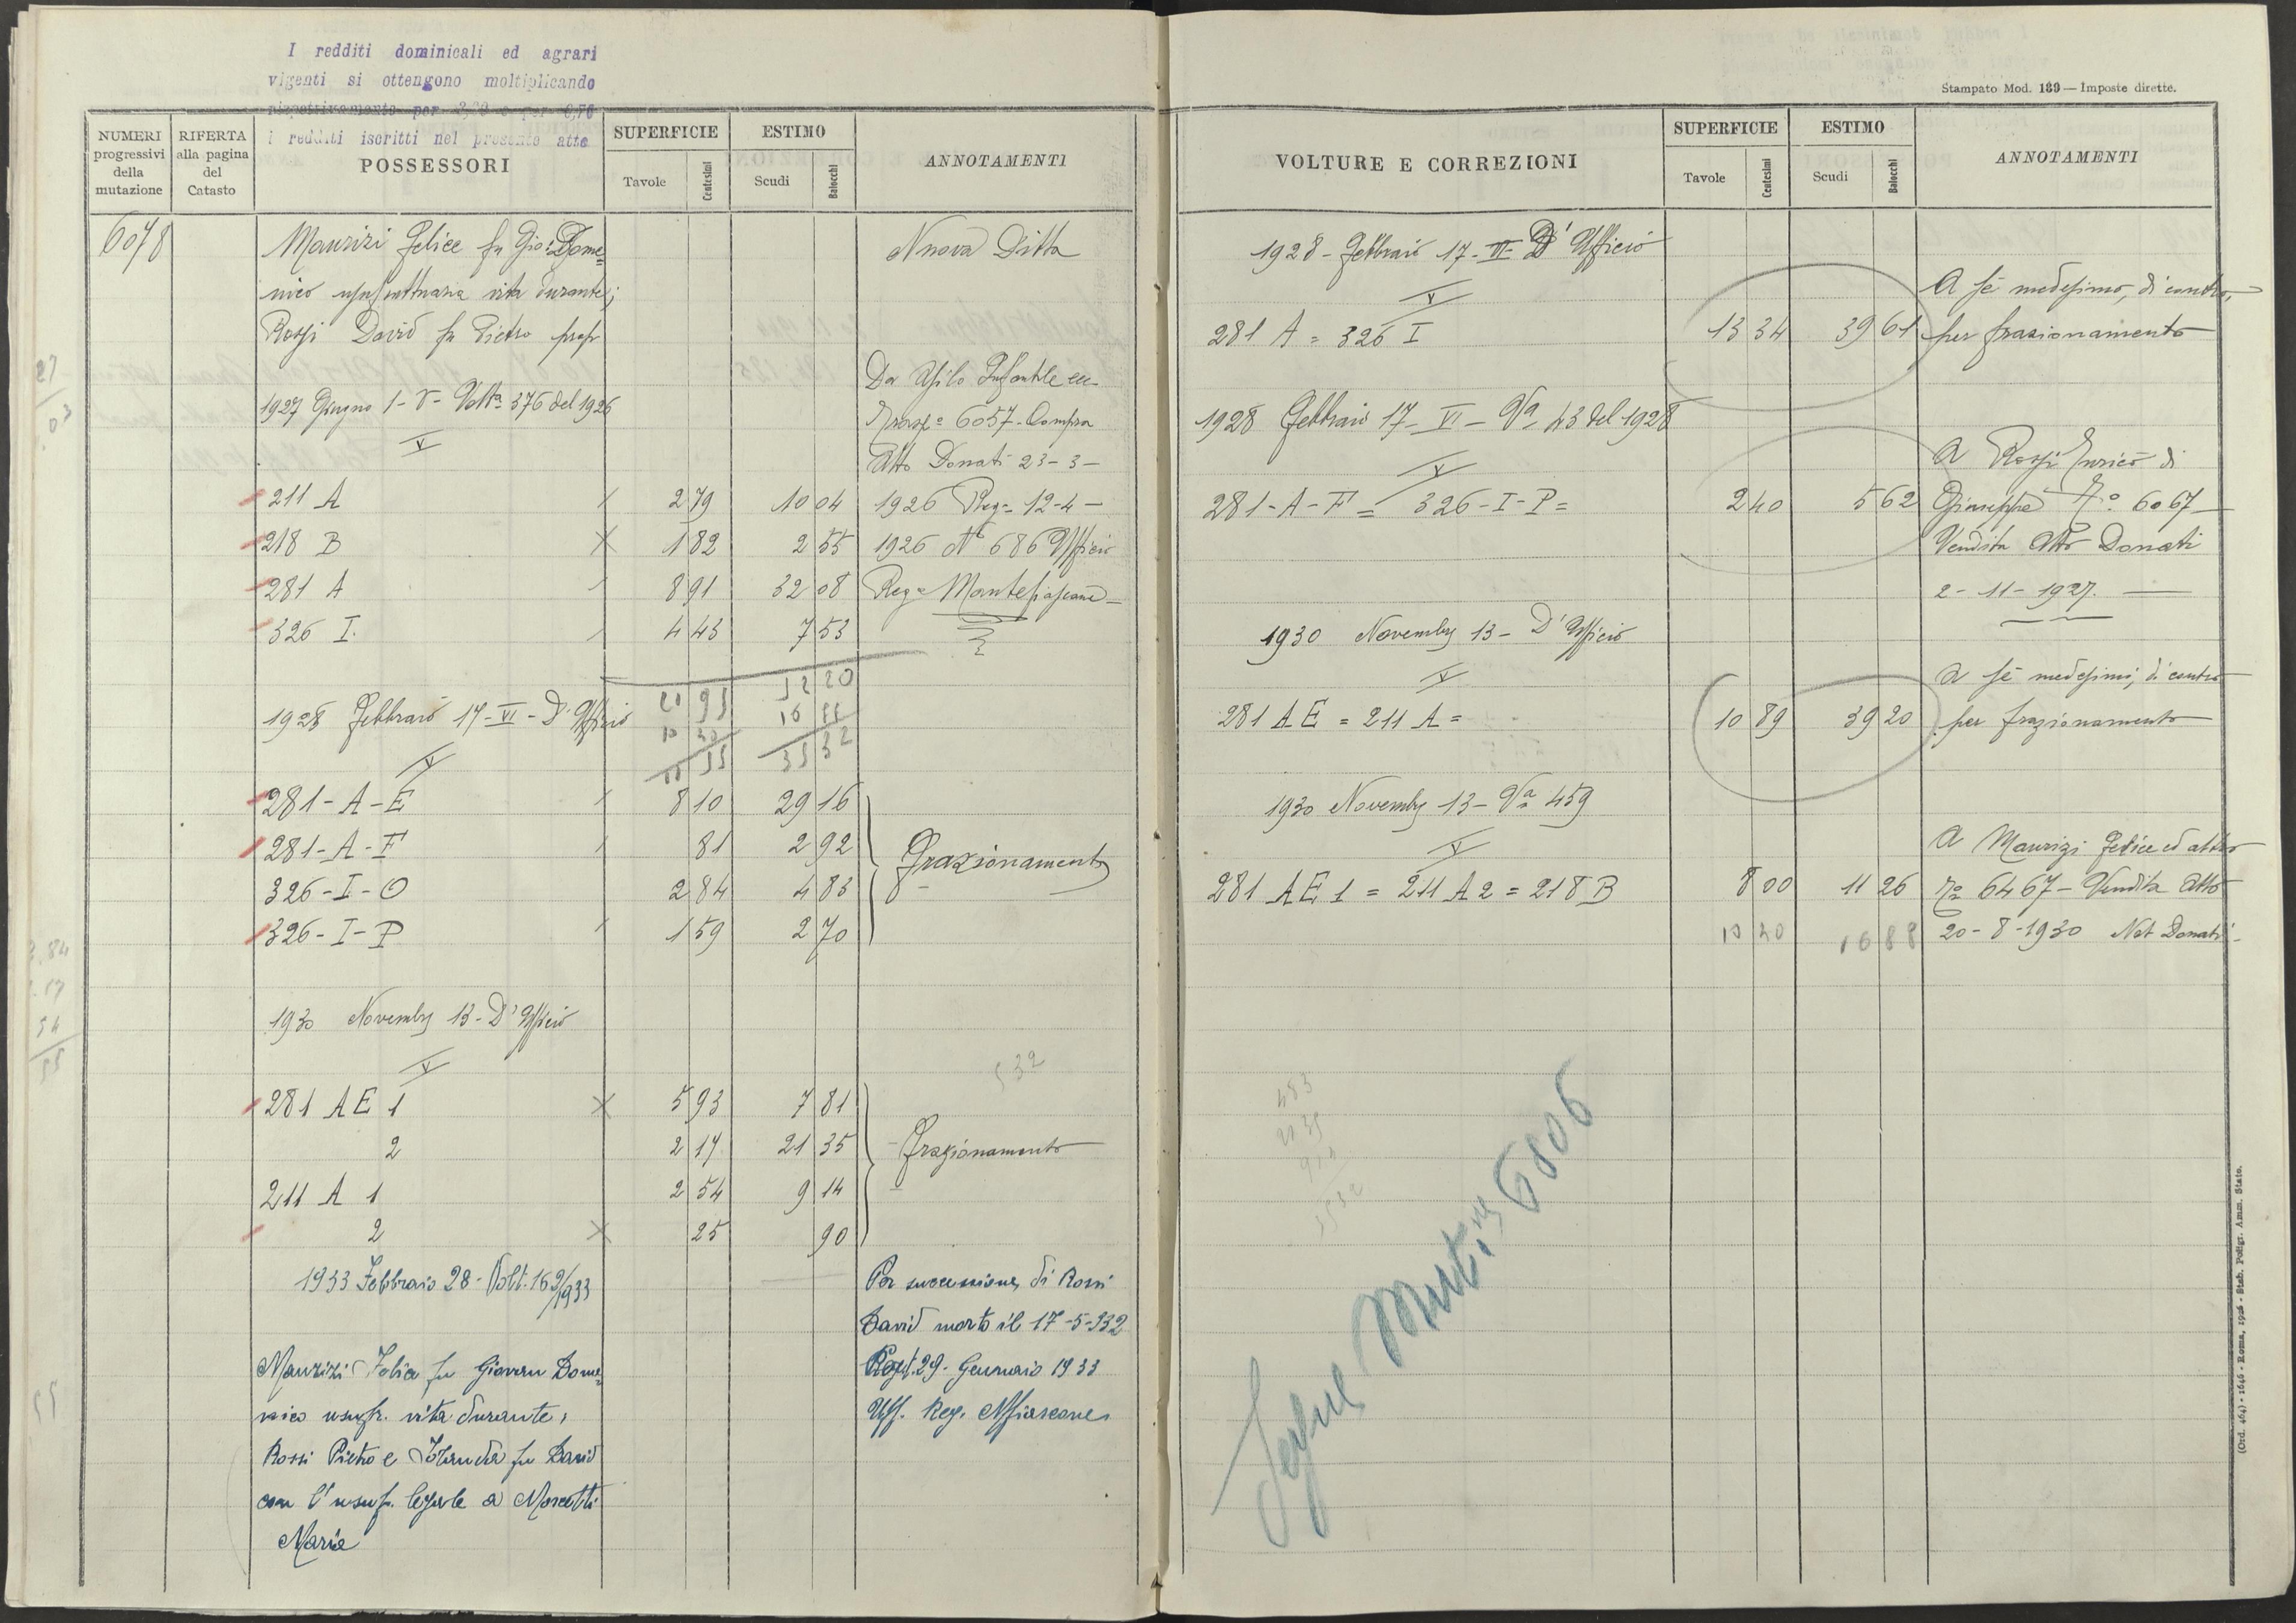 I redditi dominicali ed agrari
vigenti si ottengono moltiplicando
rispettivamente per
i redditi iscritti nel presente atto
NUMERI progressivi della mutazione
RIFERTA alla pagina del Catasto
POSSESSORI
SUPERFICIE
Tavole Centesimi
ESTIMO
Scudi Baiocchi
ANNOTAMENTI
6078
Maurizi Felice fu Gio: Dome=
nico usufruttuaria vita durante;
Rossi David fu Pietro prop
1927 Giugno 1-V- Volta 376 del 1926
V
Nuova Ditta
Da Asilo Infantile
6057 - Compra
Atto Donati 23-3-
211 A 2 79 10 04 1926 Reg= 12-4-
218 B 1 82 2 55 1926 N 686 Ufficio
281 A 8 91 32 08 Reg= Montefiascone
326 I. 4 43 7 53
52 20
1928 Febbraio 17-VI-D'Ufficio
V
281-A-E 8 10 29 16
281-A-F 81 2 92
326-I-O 2 84 4 83
326-I-P 1 59 2 70
Frazionamento
1930 Novembre 13-D'Ufficio
V
532
281 AE 1 5 93 7 81
2 2 17 21 35
211 A 1 2 54 9 14
2 25 90
Frazionamento
1933 Febbraio 28 - Volt. 169/933
Maurizi Felice fu Giovan Dome=
nico usufr. vita durante,
Rossi Pietro e Jolanda fu David
con l'usuf. legale a Morcotti
Maria
Per successione di Rossi
David morto il 17-5-932
Regist. 29. Gennaio 1933
Uff. Reg. Mfiascone
Stampato Mod. 189 — Imposte dirette.
VOLTURE E CORREZIONI
SUPERFICIE
Tavole Centesimi
ESTIMO
Scudi Baiocchi
ANNOTAMENTI
1928 - Febbraio 17-VI- D'Ufficio
V
281 A = 326 I 13 34 39 61
A sé medesimo, di contro,
per frazionamento
1928 Febbraio 17-VI- Va 43 del 1928
V
281-A-F = 326-I-P= 2 40 5 62
A Rossi Enrico di
Giuseppe No 6067
Vendita Atto Donati
2-11-1927.
1930 Novembre 13- D'Ufficio
V
281 AE = 211 A = 10 89 39 20
A sé medesimi, di contro
per frazionamento
1930 Novembre 13- Va 459
V
281 AE 1 = 211 A 2 = 218 B 8 00 11 26
10 40 16 88
A Maurizi Felice ed altro
No 6467 - Vendita Atto
20-8-1930 Not Donati
Segue Mut.ne 6806
(Ord. 464) - 1646 - Roma, 1926 - Stab. Poligr. Amm. Stato.